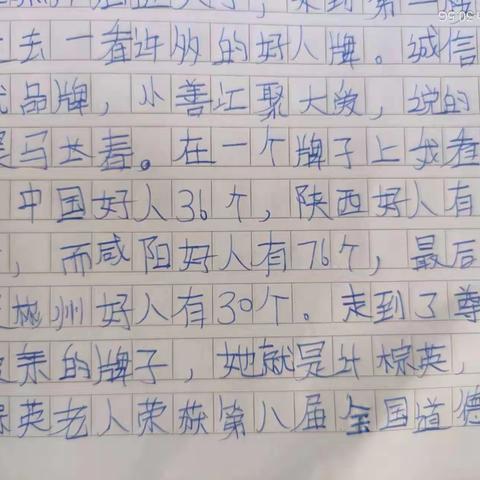 走到第一
去一看许多的好人牌。诚信
品牌，小善汇聚大爱，说的
马长春。在一个牌子上我看
中国好人36个，陕西好人有
，而咸阳好人有76个，最后
彬州好人有30个。走到了尊
的牌子，她就是叶棕英，
英老人荣获第八届全国道德